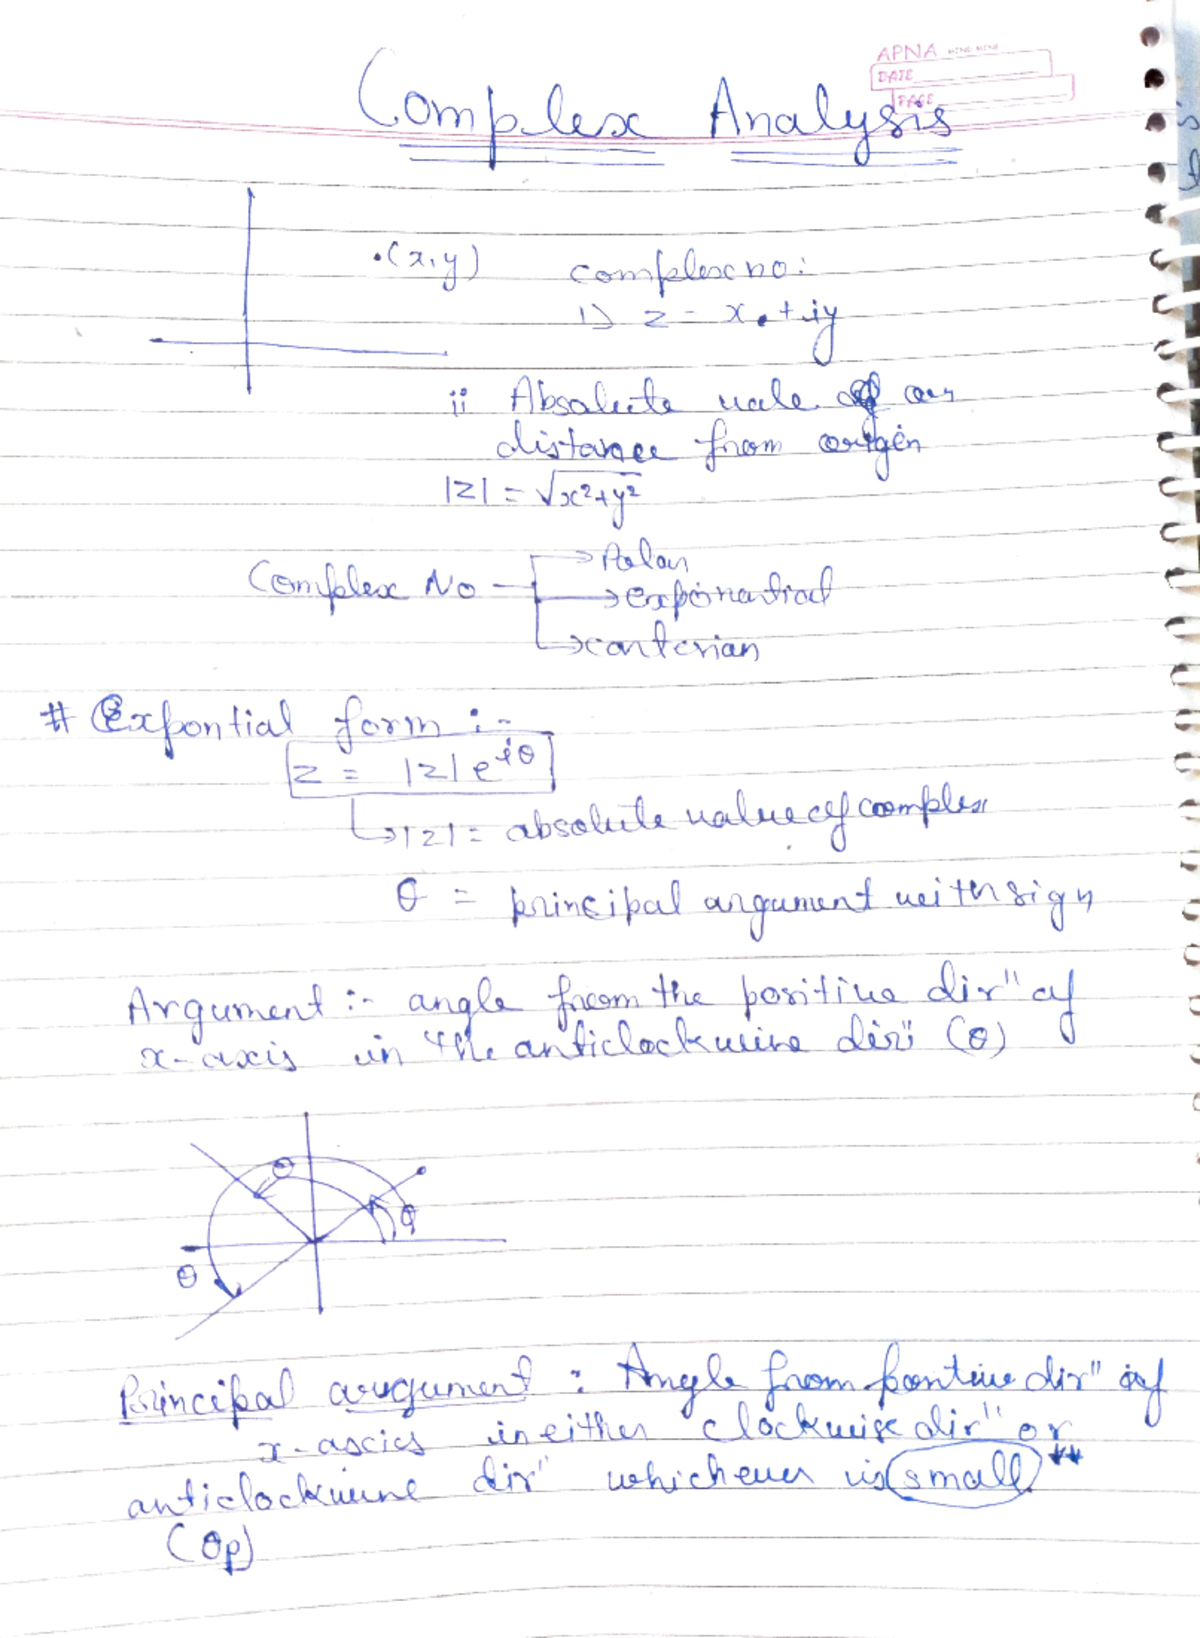 APNA
DATE
PAGE
Complex Analysis
.(x,y)
complex no:
1) z = x + iy
ii Absolute vale of our
distance from origin
|z| = √x²+y²
Complex No
→ Polar
→ exponential
→ carterian
# Expontial form :-
z = |z| e^iθ
→ |z| = absolute value of complex
θ = principal argument with sign
Argument :- angle from the positive dirⁿ of
x-axis in the anticlockwise dirⁿ (θ)
θ
θ
θ
Principal argument : Angle from positive dirⁿ of
x-axis in either clockwise dirⁿ or
anticlockwise dirⁿ whichever is small **
(θp)